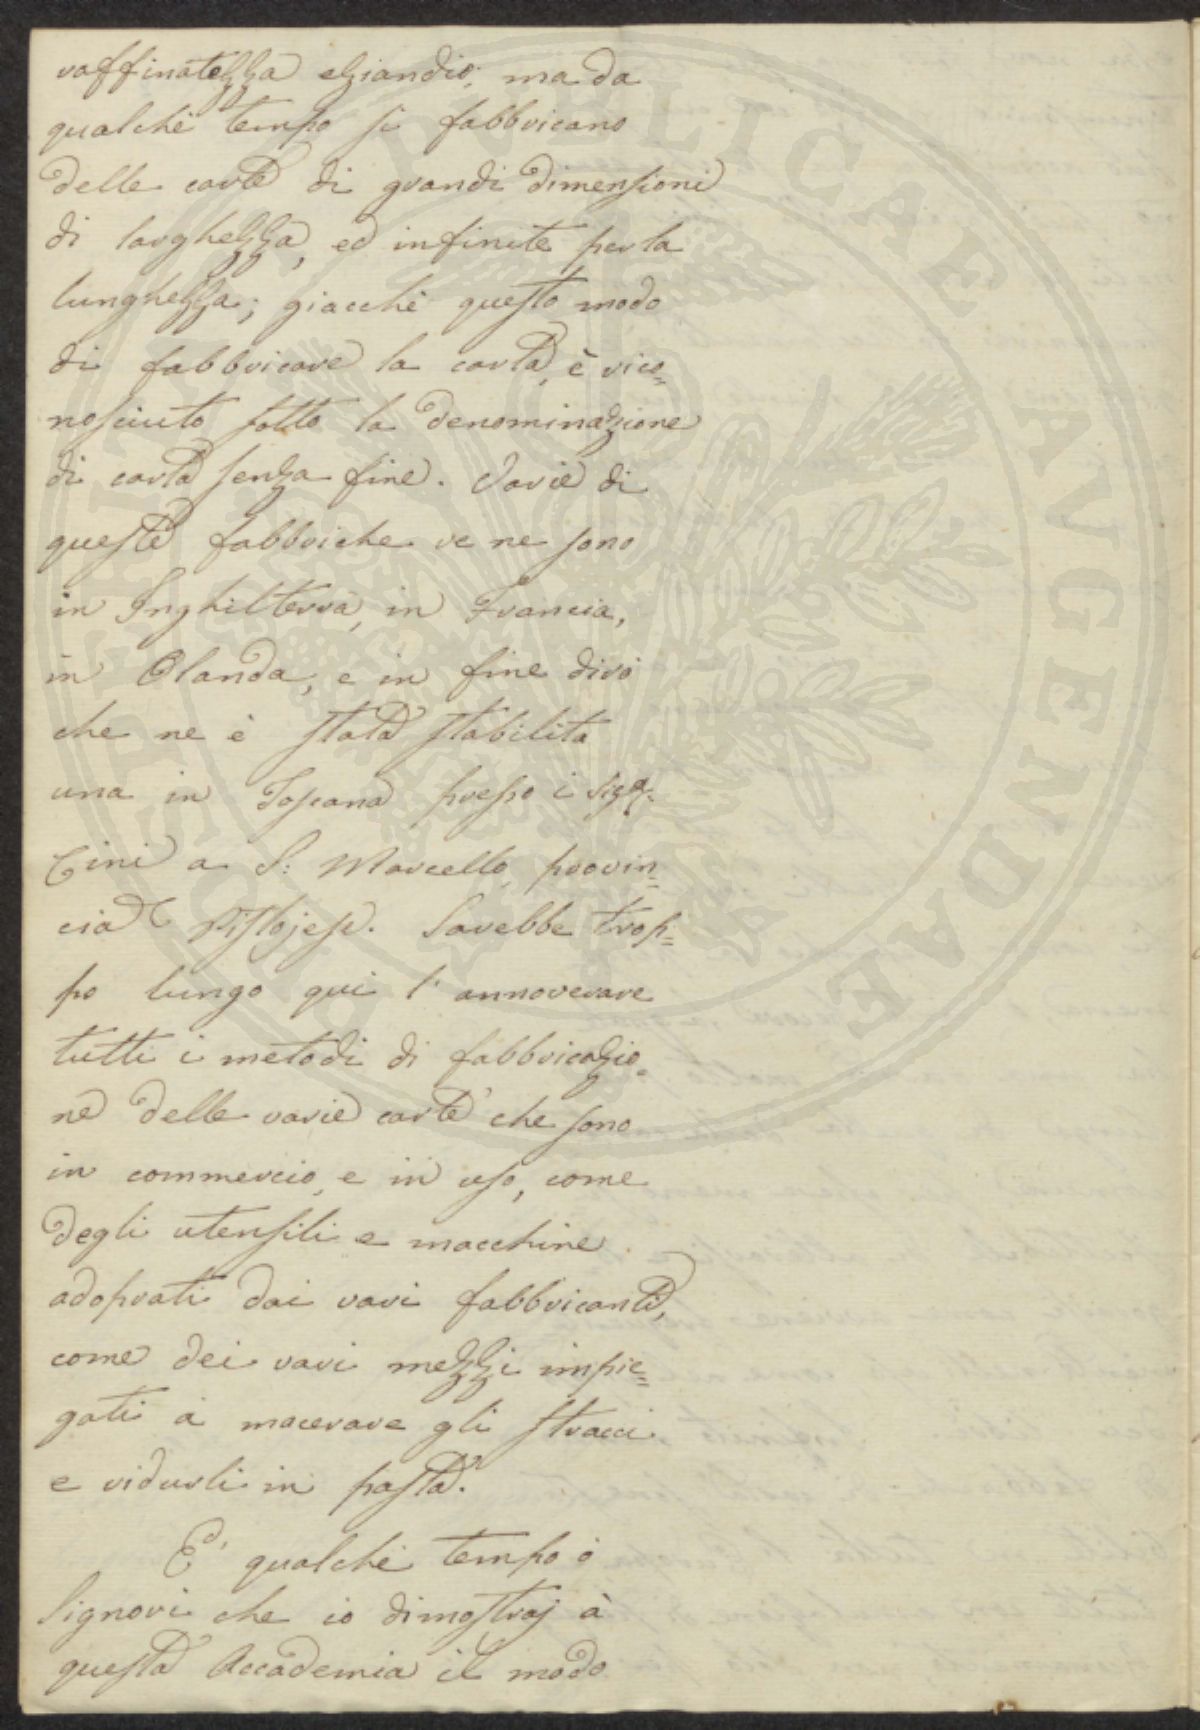 raffinatezza eziandio; ma da
qualche tempo si fabbricano
delle carte di grandi dimensioni
di larghezza, ed infinite per la
lunghezza; giacchè questo modo
di fabbricare la carta, è rico=
nosciuto sotto la denominazione
di carta senza fine. Varie di
queste fabbriche ve ne sono
in Inghilterra, in Francia,
in Olanda, e in fine dirò
che ne è stata stabilita
una in Toscana presso i Sigri
Cini a S: Marcello, provin=
cia Pistojese. Sarebbe trop=
po lungo qui l'annoverare
tutti i metodi di fabbricazio=
ne delle varie carte che sono
in commercio, e in uso, come
degli utensili e macchine
adoprati dai vari fabbricanti,
come dei vari mezzi impie=
gati a macerare gli stracci
e ridurli in pasta.
E' qualche tempo ò
Signori che io dimostraj à
questa Accademia il modo
PVBLICAE AVGENDAE